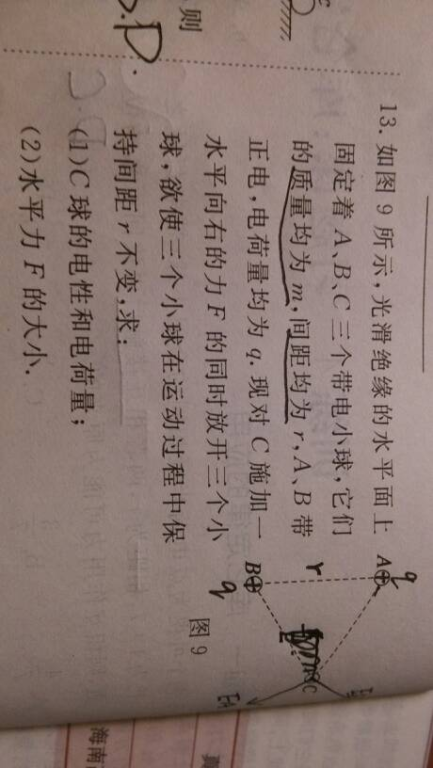 则
13. 如图 9 所示,光滑绝缘的水平面上
固定着 A、B、C 三个带电小球,它们
的质量均为 m,间距均为 r,A、B 带
正电,电荷量均为 q. 现对 C 施加一
水平向右的力 F 的同时放开三个小
球,欲使三个小球在运动过程中保
持间距 r 不变,求:
(1)C 球的电性和电荷量;
(2)水平力 F 的大小.
A
q
r
B
q
C
图 9
海南